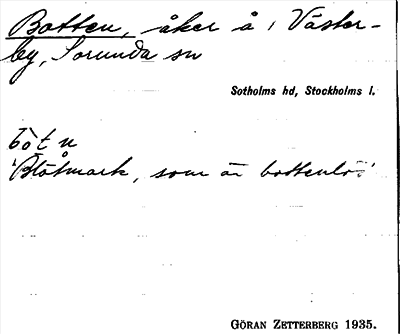 Botten, åker å Väster-
by, Sorunda sn
Sotholms hd, Stockholms l.
bòt n
'Blötmark, som är bottenlös'
GÖRAN ZETTERBERG 1935.